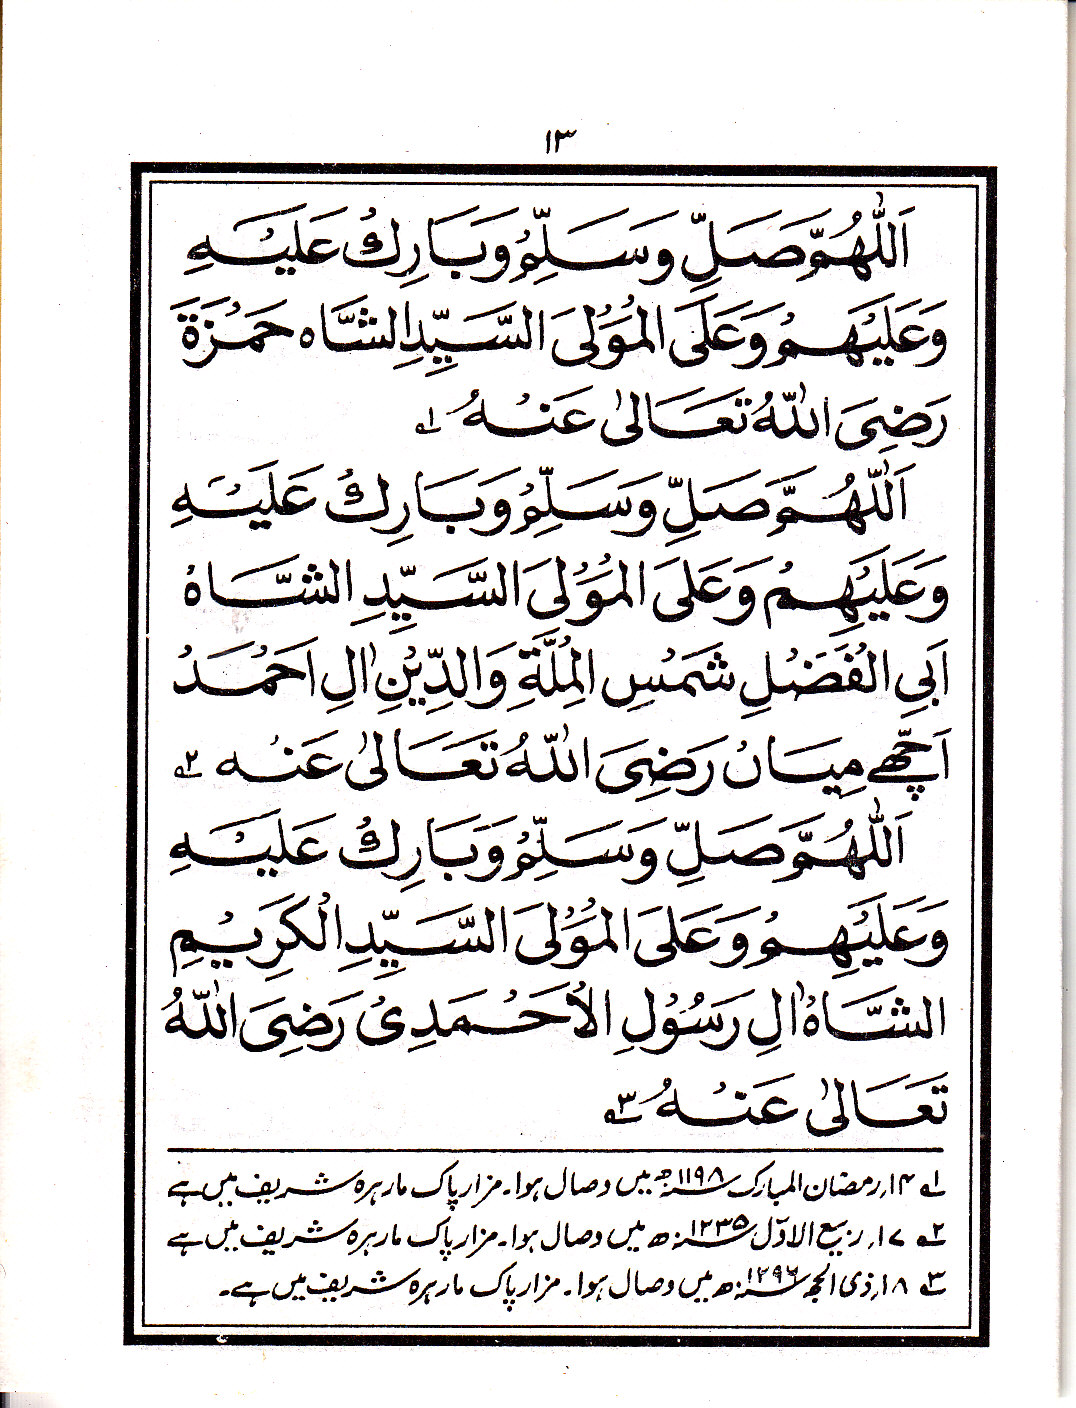 ۱۳
اَللّٰهُمَّ صَلِّ وَسَلِّمْ وَبَارِكْ عَلَيْهِ
وَعَلَيْهِمْ وَعَلَى الْمَوْلَى السَّيِّدِ الشَّاه حَمْزَةَ
رَضِيَ اللّٰهُ تَعَالىٰ عَنْهُ ؎۱
اَللّٰهُمَّ صَلِّ وَسَلِّمْ وَبَارِكْ عَلَيْهِ
وَعَلَيْهِمْ وَعَلَى الْمَوْلَى السَّيِّدِ الشَّاهْ
اَبِي الْفَضْلِ شَمْسِ الْمِلَّةِ وَالدِّيْنِ اٰلِ اَحْمَدْ
اَچّھے مِيَاںْ رَضِيَ اللّٰهُ تَعَالىٰ عَنْه ؎۲
اَللّٰهُمَّ صَلِّ وَسَلِّمْ وَبَارِكْ عَلَيْهِ
وَعَلَيْهِمْ وَعَلَى الْمَوْلَى السَّيِّدِ الْكَرِيْمِ
الشَّاهْ اٰلِ رَسُوْلِ الْاَحْمَدِىْ رَضِيَ اللّٰهُ
تَعَالىٰ عَنْهُ ؎۳
؎۱ ۱۴؍رمضان المبارک ۱۱۹۸؁ھ میں وصال ہوا۔ مزار پاک مارہرہ شریف میں ہے
؎۲ ۱۷؍ربیع الاوّل ۱۲۳۵؁ھ میں وصال ہوا۔ مزار پاک مارہرہ شریف میں ہے
؎۳ ۱۸؍ذی الحجہ ۱۲۹۶؁ھ میں وصال ہوا۔ مزار پاک مارہرہ شریف میں ہے۔